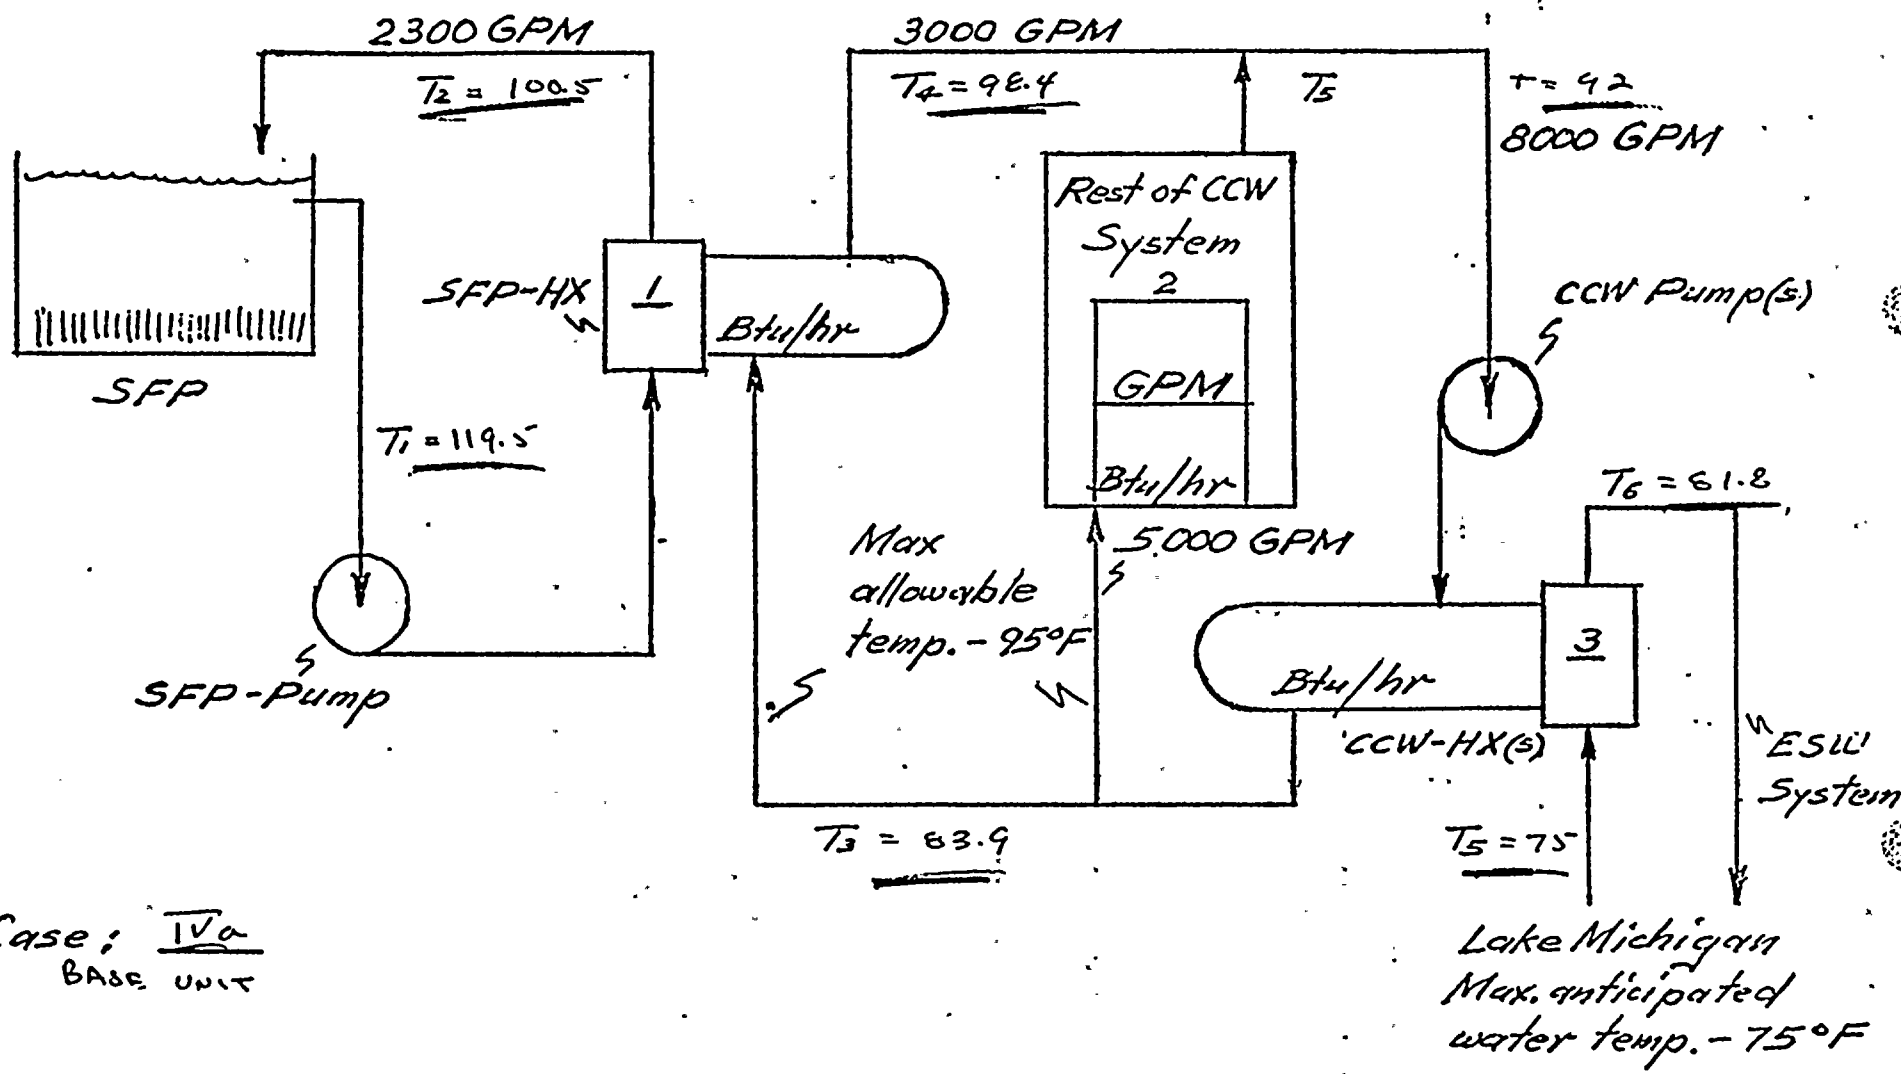 2300 GPM
T2 = 100.5
3000 GPM
T4 = 98.4
T5
T = 92
8000 GPM
Rest of CCW
System
2
GPM
Btu/hr
SFP-HX
1
Btu/hr
CCW Pump(s)
SFP
T1 = 119.5
T6 = 81.8
Max
allowable
temp. - 95°F
5000 GPM
3
Btu/hr
SFP-Pump
CCW-HX(s)
ESW
System
T3 = 83.9
T5 = 75
Case: IVa
BASE UNIT
Lake Michigan
Max. anticipated
water temp. - 75°F